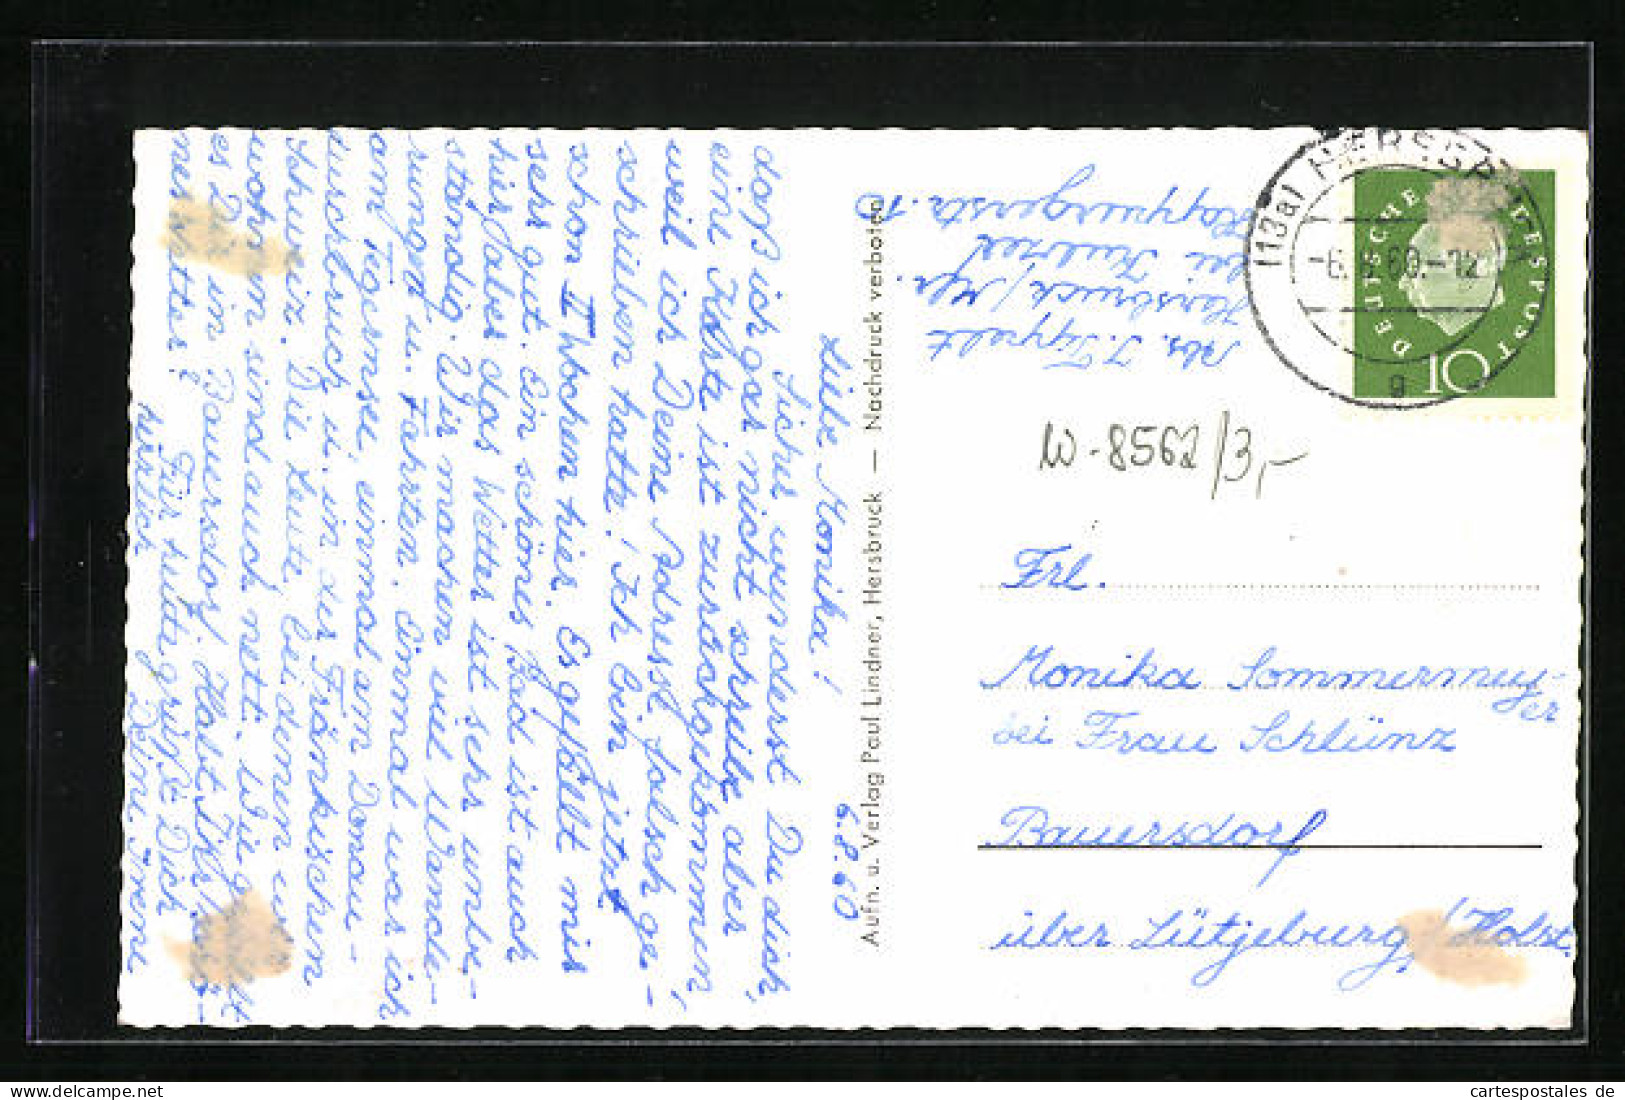 6.8.60
Liebe Monika!
Sicher wunderst Du dich,
daß ich gar nicht schreibe aber
eine Karte ist zurückgekommen,
weil ich Deine Adresse falsch ge-
schrieben hatte! Ich bin jetzt
schon II Wochen hier. Es gefällt mir
sehr gut. Ein schönes Bad ist auch
hier, aber das Wetter ist sehr unbe-
ständig. Wir machen viel Wande-
rungen u. Fahrten. Einmal war ich
am Tegernsee, einmal am Donau-
durchbruch u. in der Fränkischen
Schweiz. Die Leute, bei denen wir
wohnen sind auch nett. Wie gefällt
es Dir in Bauersdorf. Habt Ihr
wetter?
Für heute grüßt Dich
herzlich Deine Irene
Aufn. u. Verlag Paul Lindner, Hersbruck — Nachdruck verboten
Abs. I. Tippelt
Hersbruck/Mfr.
bei
Happurgerstr. 10
(13a) HERSBRUCK
-6. 8. 60.-12
g
DEUTSCHE BUNDESPOST
10
W-8562/3,-
Frl.
Monika Sommermey-
er
bei Frau Schlünz
Bauersdorf
über Lütjeburg/Holst.
cartespostales de